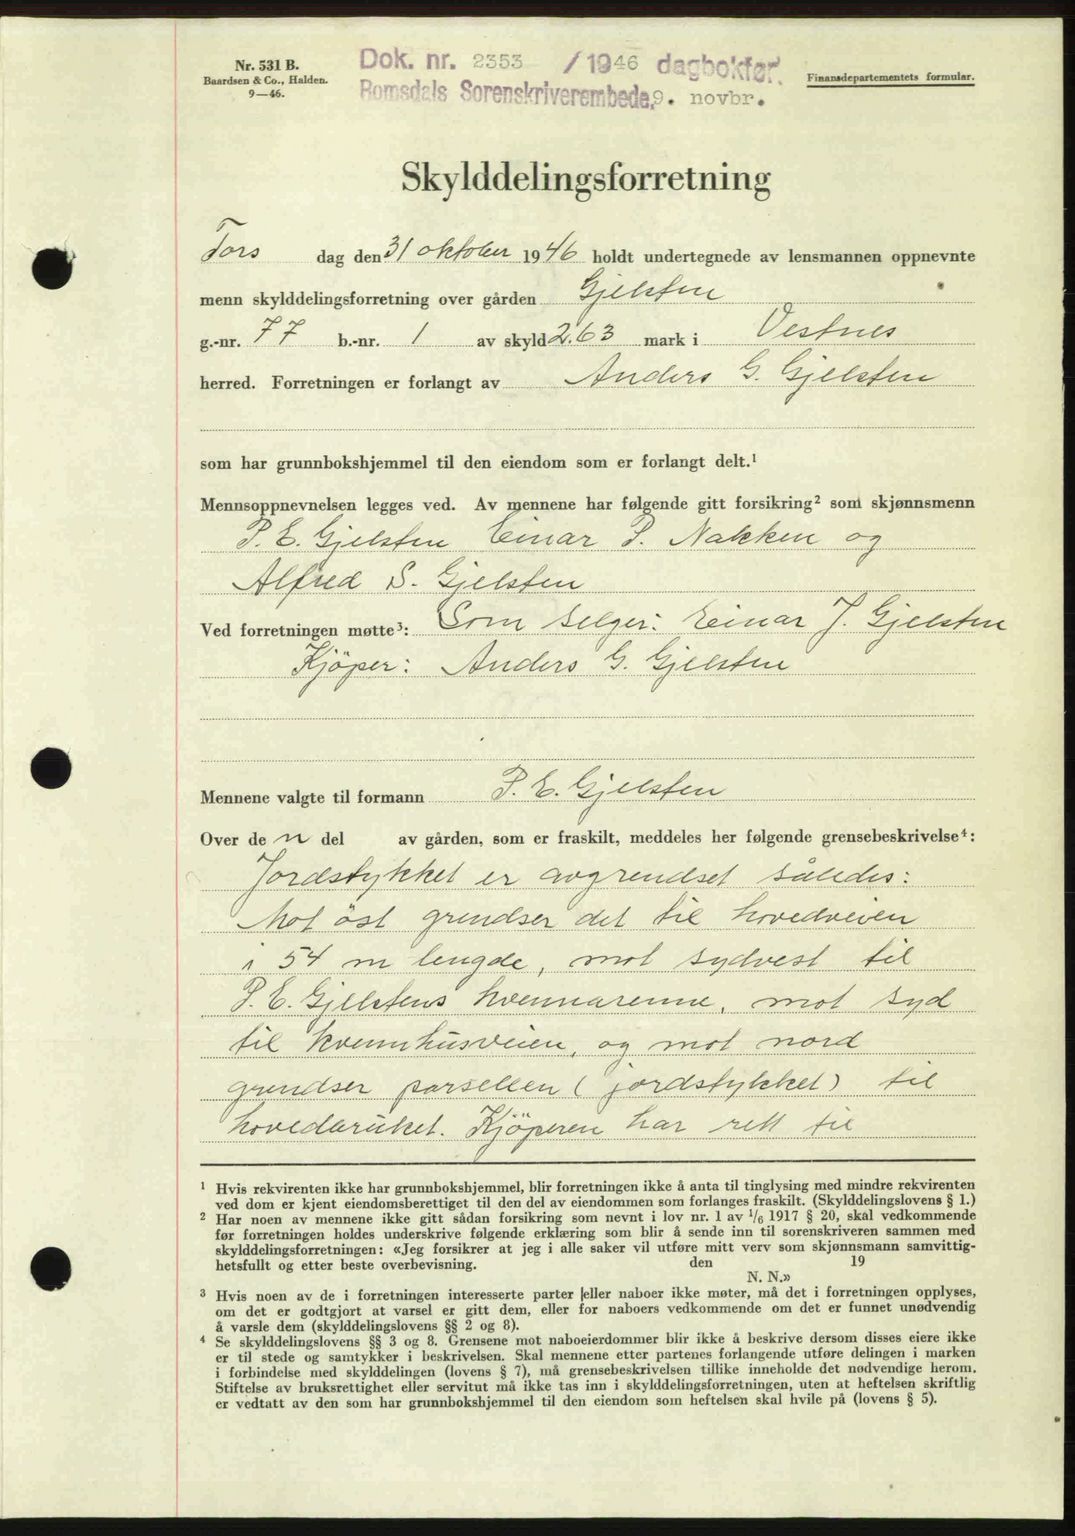 Nr. 531 B.
Baardsen & Co., Halden.
9—46.
Dok. nr. 2353 /1946 dagbokfør.
Romsdals Sorenskriverembede, 9. novbr.
Finansdepartementets formular.
Skylddelingsforretning
Tors dag den 31 oktober 1946 holdt undertegnede av lensmannen oppnevnte
menn skylddelingsforretning over gården Gjelsten
g.-nr. 77 b.-nr. 1 av skyld 2.63 mark i Vestnes
herred. Forretningen er forlangt av Anders G. Gjelsten
som har grunnbokshjemmel til den eiendom som er forlangt delt.¹
Mennsoppnevnelsen legges ved. Av mennene har følgende gitt forsikring² som skjønnsmenn
P. E. Gjelsten Einar P. Nakken og
Alfred S. Gjelsten
Ved forretningen møtte³: Som selger: Einar J. Gjelsten
Kjöper: Anders G. Gjelsten
Mennene valgte til formann P. E. Gjelsten
Over de n del av gården, som er fraskilt, meddeles her følgende grensebeskrivelse⁴:
Jordstykket er avgrendset således:
Mot öst grendser det til hovedveien
i 54 m lengde, mot sydvest til
P. E. Gjelstens kvennarenne, mot syd
til kvennhusveien, og mot nord
grendser parsellen (jordstykket) til
hovedbruket. Kjöperen har rett til
¹ Hvis rekvirenten ikke har grunnbokshjemmel, blir forretningen ikke å anta til tinglysing med mindre rekvirenten
ved dom er kjent eiendomsberettiget til den del av eiendommen som forlanges fraskilt. (Skylddelingslovens § 1.)
² Har noen av mennene ikke gitt sådan forsikring som nevnt i lov nr. 1 av 1/6 1917 § 20, skal vedkommende
før forretningen holdes underskrive følgende erklæring som blir å sende inn til sorenskriveren sammen med
skylddelingsforretningen: «Jeg forsikrer at jeg i alle saker vil utføre mitt verv som skjønnsmann samvittig-
hetsfullt og etter beste overbevisning. den 19
N. N.»
³ Hvis noen av de i forretningen interesserte parter eller naboer ikke møter, må det i forretningen opplyses,
om det er godtgjort at varsel er gitt dem, eller for naboers vedkommende om det er funnet unødvendig
å varsle dem (skylddelingslovens §§ 2 og 8).
⁴ Se skylddelingslovens §§ 3 og 8. Grensene mot naboeierdommer blir ikke å beskrive dersom disses eiere ikke
er til stede og samtykker i beskrivelsen. Skal mennene etter partenes forlangende utføre delingen i marken
i forbindelse med skylddelingen (lovens § 7), må grensebeskrivelsen tillike inneholde det nødvendige herom.
Stiftelse av bruksrettighet eller servitut må ikke tas inn i skylddelingsforretningen, uten at heftelsen skriftlig
er vedtatt av den som har grunnbokshjemmel til den eiendom som heftelsen skal hvile på (lovens § 5).